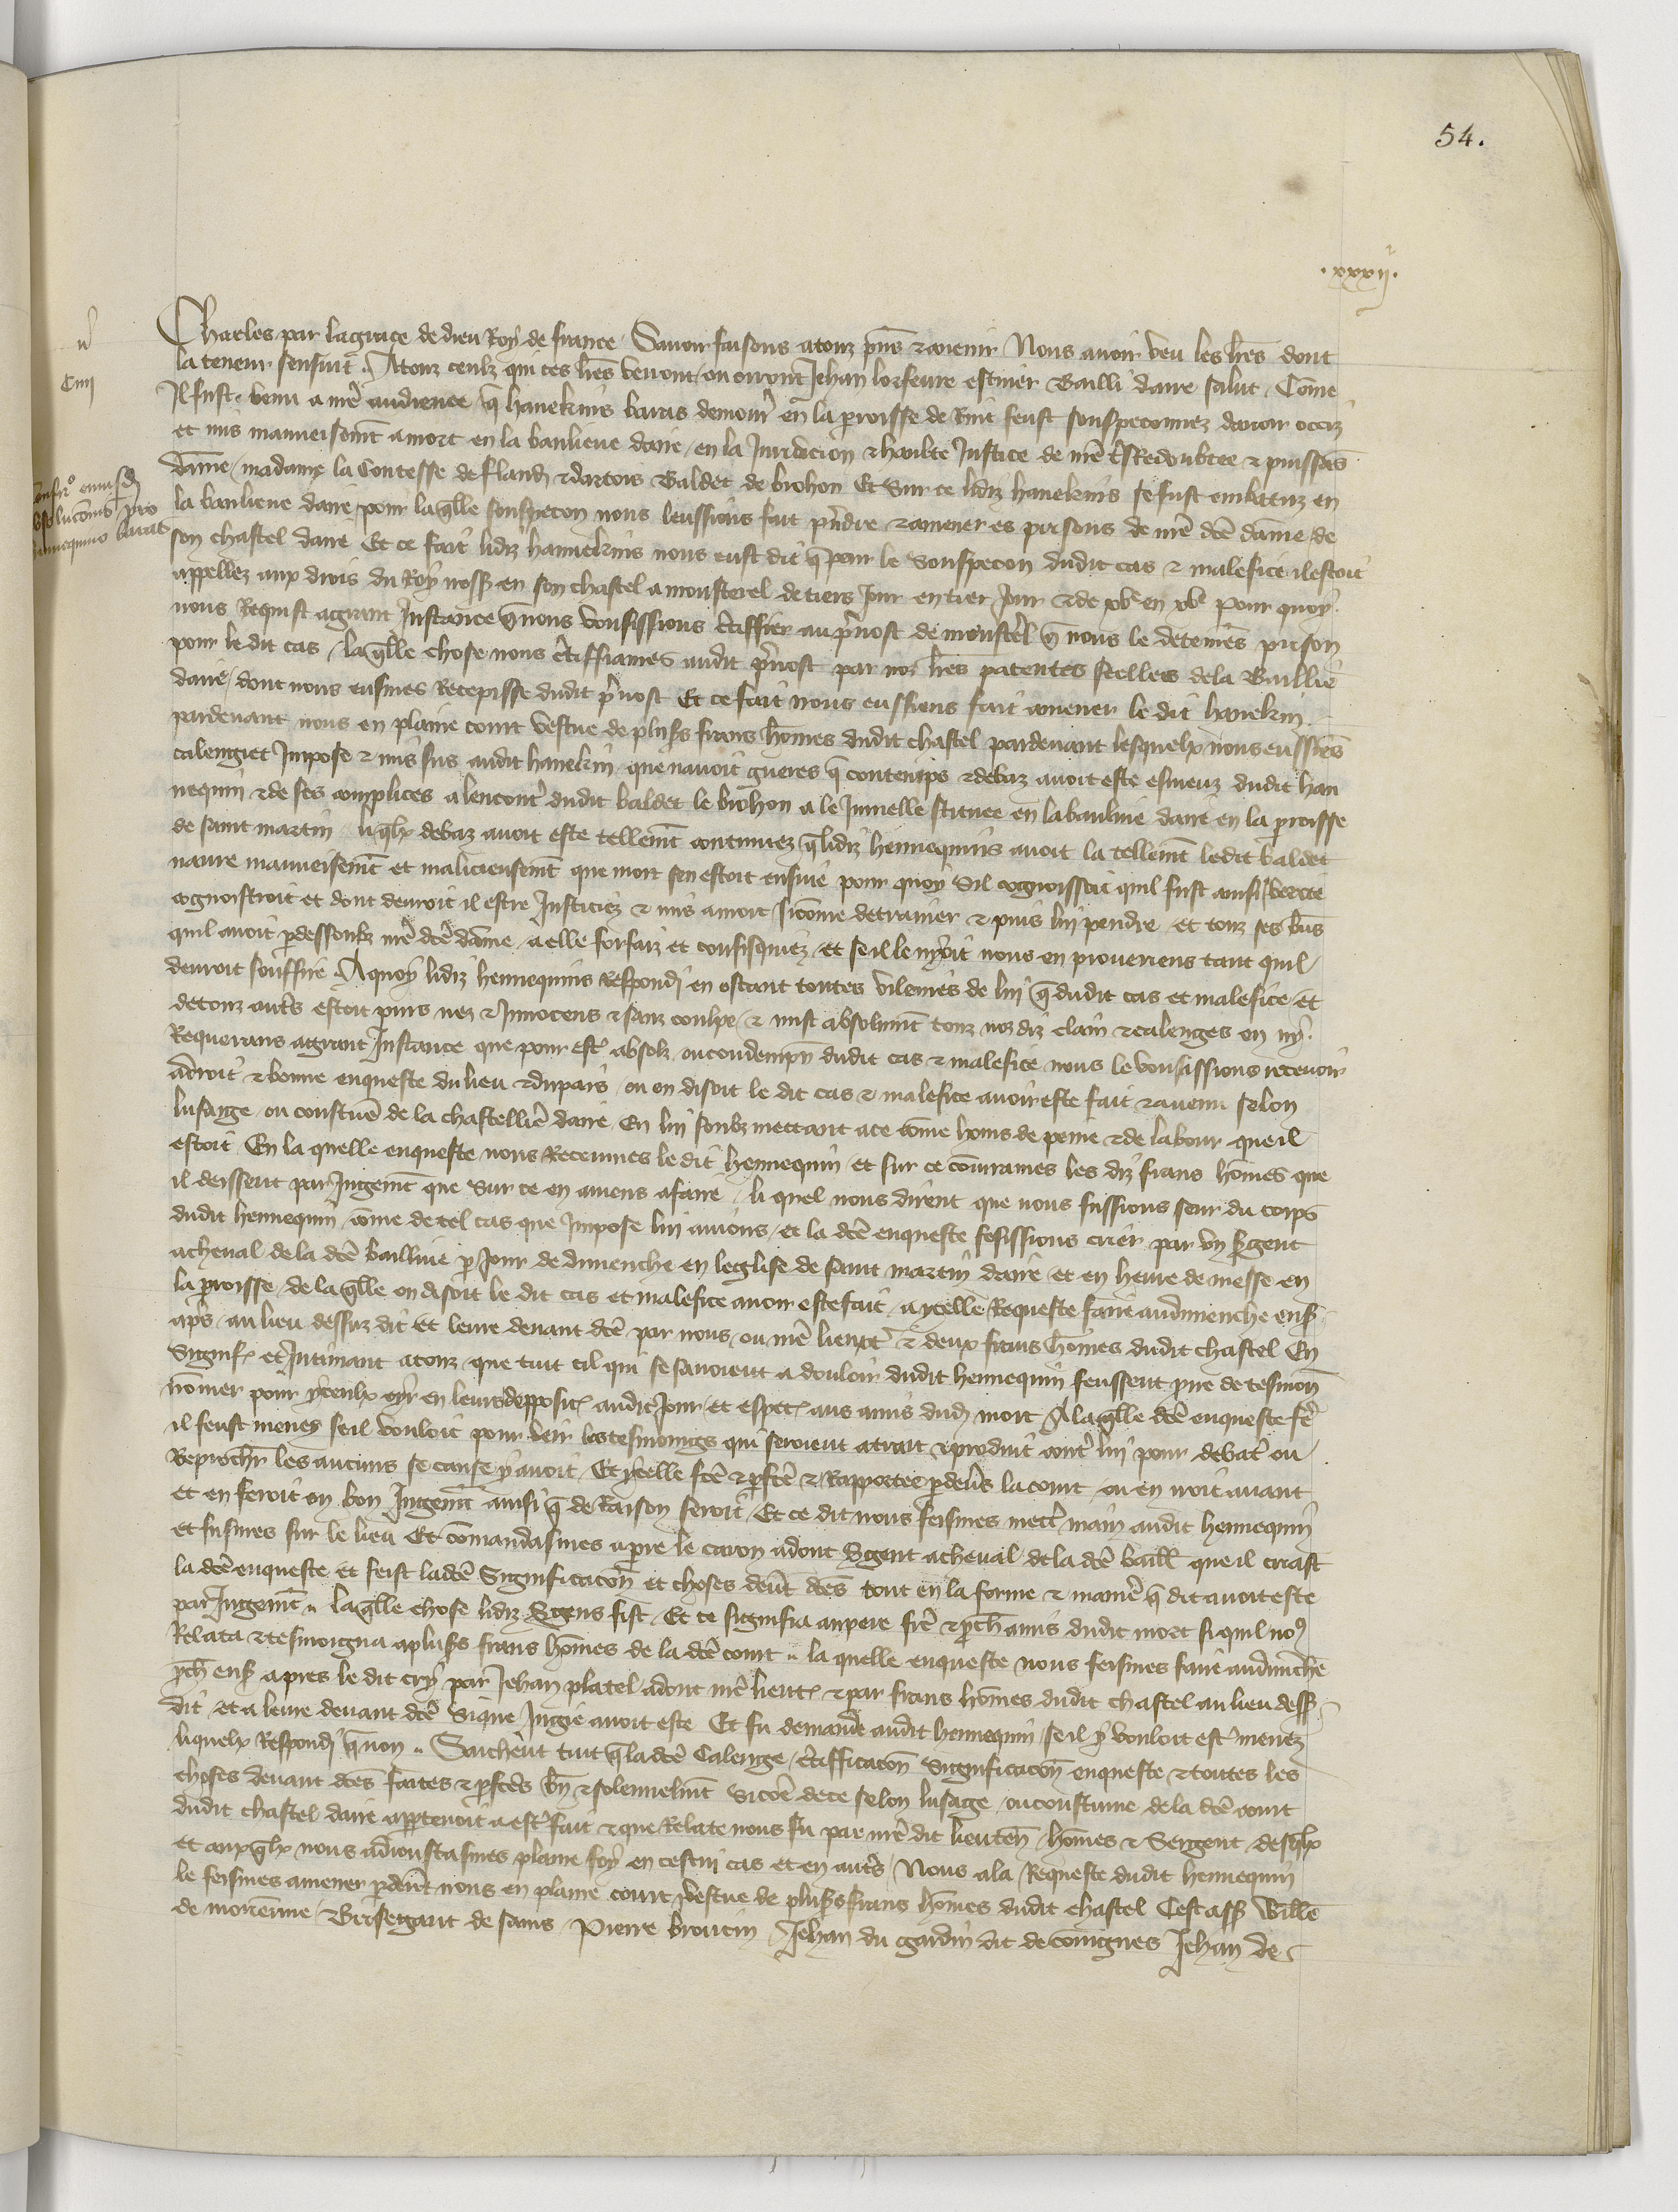 54.
.xxxij.
Charles par la grace de dieu Roy de france Savoir faisons a touz pñs & avenir Nous avoir veu les lres dont
la teneur sensuit A touz ceulx qui ces lres verront ou orront Jehan lorfevre escuier Bailli daire salut Cõme
Il fust venu a nr̃e audience q̃ hanekins baras demour en la parroisse de feust souspeconnez davoir occiz
et mis mauveisemt a mort en la banlieue daire en la Juridicion & haulte Justice de nr̃e Redoubtee & puissãt
dame madame la Contesse de fland & dartois Baldet de brohon Et Sur ce lidiz hanekins se fust embatuz en
la banlieue daire pour laq̃lle souspecon nous leussiens fait pñdre & amener es prisons de nr̃e dcẽ dame de
son chastel daire Et ce fait lidiz hannekins nous eust dit q̃ pour le Souspecon dudit cas & malefice il estoit
appellez aux drois du Roy noss en son chastel a monsterel de tiers Jour en tier Jour & de xve en xve pour quoy
nous Requist a grant Instance q̃ nous vousissions c̃tiffier au p̃vost de monsterl q̃ nous le deteniẽs prison
pour le dit cas laq̃lle chose nous c̃tiffiames audit p̃vost par noz lres patentes seellees de la Baillie
daire dont nous eusmes Recepisse dudit p̃vost Et ce fait nous eussiens fait amener le dit hanekin
pardevant nous en plaine court vestue de plus̃s frans hom̃es dudit chastel pardevant lesquelx nous eussiẽs
calengiet Impose & mis sus audit hanekin que navoit gueres q̃ contemps & debaz avoit este esmeuz dudit han
nequin & de ses complices a lencont̃ dudit baldet le brohon a le Jumelle scituee en la banlieue daire en la proisse
de saint martin liq̃lx debaz avoit este tellemt continuez q̃ lidiz hennequins avoit la tellemt ledit baldet
navre mauveisemt et malicieusemt que mort sen estoit ensuie pour quoy Sil cognoissoit quil fust ainsi
cognoistroit et dont devroit il estre Justiciez & mis a mort sicõme de trainer & puis lui pendre et touz ses bñs
quil avoit p̃dessoubz nr̃e dcẽ dame a elle forfaiz et confisquiez et se il le nyoit nous en prouveriens tant quil
devroit souffire A quoy lidiz hennequins Respondi en ostant toutes vilenies de lui q̃ dudit cas et malefice et
de touz aut̃s estoit purs nez & Innocens & sanz coulpe & mist absolumt touz noz diz claim & calenges en ny
Requerans a grant Instance que pour est̃ absolz ou condempn dudit cas & malefice nous le vousissions recevoir
a droit & bonne enqueste du lieu & du pais ou on disoit le dit cas & malefice avoir este fait & avenu selon
lusage ou coustũe de la chastellie daire En lui soubz mettant a ce cõme homs de peine & de labour que il
estoit En la quelle enqueste nous Receumes le dit hennequin et sur ce cõiurames les diz frans hom̃es que
il deissent par Jugemt que Sur ce en aviens a faire li quel nous dirent que nous fussions seur du corps
dudit hennequin cõme de tel cas que Impose lui avions et la dcẽ enqueste fesissions crier par un Sergent
a cheval de la dcẽ bailliie p̃ Jour de dimenche en leglise de saint martin daire et en heure de messe en
la proisse de laq̃lle on disoit le dit cas et malefice avoir este fait a ycelle Requeste faire au dimenche ens
ap̃s au lieu dessuz dit et leure devant dcẽ par nous ou nr̃e lieut & deux frans hom̃es dudit chastel En
Signif et Intimant a touz que tuit cil qui se savoient a douloir dudit hennequin feussent pour de tesmoin
nom̃er pour yceulx oyr en leurs depposit audit Jour et especi aus amis dud mort A laq̃lle dcẽ enqueste
il feust menez se il vouloit pour veir les tesmoings qui seroient atrait & produit cont̃ lui pour debat̃ ou
Reprochr les aucuns se cause y avoit Et ycelle fcẽ & p̃fcẽ & Rapportee p̃devs la court on en yroit avant
et en feroit on bon Jugemt ainsi q̃ de Raison seroit Et ce dit nous feismes mett̃ main audit hennequin
et fusmes sur le lieu Et cõmandasmes a pierre le caron adont Sergent a cheval de la dcẽ baill que il criast
la dcẽ enqueste et feist la dcẽ Significacõn et choses devt dcẽs tout en la forme & manie q̃ dit avoit este
par Jugemt laq̃lle chose lidiz Sergens fist Et ce signifia au pere frẽ & p̃ch amis dudit mort si quil no9
Relata & tesmoigna a plus̃s frans hom̃es de la dcẽ court la quelle enqueste nous feismes faire au dimẽche
p̃ch ens apres le dit cry par Jehan platel adont nr̃e lieut & par frans hom̃es dudit chastel au lieu dess
dit et a leure devant dcẽ Si que Jugie avoit este Et fu demande audit hennequin se il y vouloit est̃ menez
liquelx Respondi q̃ non Saichent tuit q̃ la dcẽ Calenge c̃tifficacõn Significacõn enqueste & toutes les
choses devant dcẽs faites & p̃fctẽs bn & solennelmt Si cõe de ce selon lusage ou coustume de la dcẽ court
dudit chastel daire app̃tenoit a est̃ fait & que Relate nous fu par nr̃e dit lieuten hom̃es & Sergent desq̃lx
et auxq̃lx nous adioustasmes plaine foy en cestui cas et en aut̃s Nous a la Requeste dudit hennequin
le feismes amener p̃devt nous en plaine court vestue de plus̃s frans hom̃es dudit chastel Cest ass Will̃e
de morienne Brisegaut de sains Pierre broutin Jehan du gardin dit de couignes Jehan de